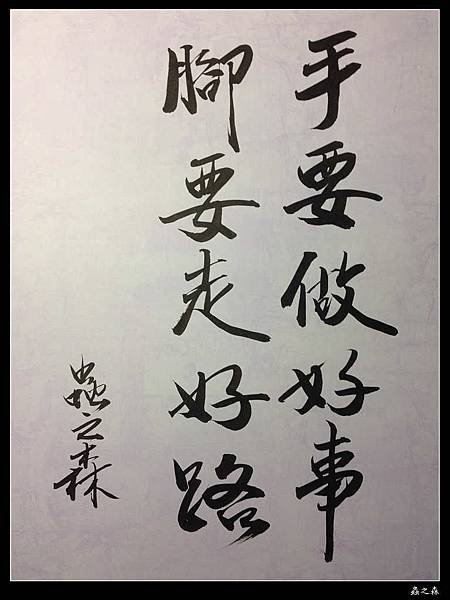 手要做好事
腳要走好路
蟲之森
蟲之森